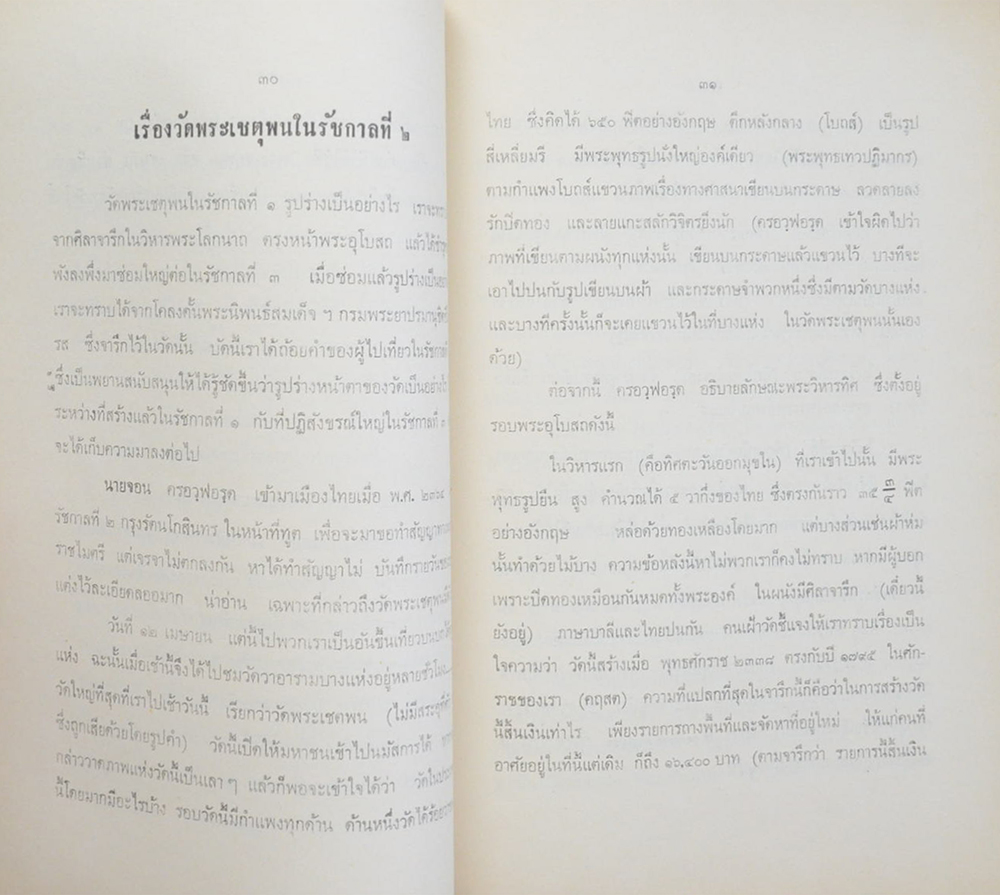 ๓๐
เรื่องวัดพระเชตุพนในรัชกาลที่ ๒
วัดพระเชตุพนในรัชกาลที่ ๑ รูปร่างเป็นอย่างไร เราจะ
จากศิลาจารึกในวิหารพระโลกนาถ ตรงหน้าพระอุโบสถ แล้วได้ชำรุด
พังลงพึ่งมาซ่อมใหญ่ต่อในรัชกาลที่ ๓ เมื่อซ่อมแล้วรูปร่างเป็น
เราจะทราบได้จากโคลงดั้นพระนิพนธ์สมเด็จ ฯ กรมพระยาปรมานุชิต
รส ซึ่งจารึกไว้ในวัดนั้น บัดนี้เราได้ถ้อยคำของผู้ไปเที่ยวในรัชกาล
ซึ่งเป็นพยานสนับสนุนให้ได้รู้ชัดขึ้นว่ารูปร่างหน้าตาของวัดเป็นอย่างไร
ระหว่างที่สร้างแล้วในรัชกาลที่ ๑ กับที่ปฏิสังขรณ์ใหญ่ในรัชกาลที่ ๓
จะได้เก็บความมาลงต่อไป
นายจอน ครอวฺฟอรฺด เข้ามาเมืองไทยเมื่อ พ.ศ. ๒๓๖๔
รัชกาลที่ ๒ กรุงรัตนโกสินทร ในหน้าที่ทูต เพื่อจะมาขอทำสัญญา
ราชไมตรี แต่เจรจาไม่ตกลงกัน หาได้ทำสัญญาไม่ บันทึกรายวัน
แต่งไว้ละเอียดลออมาก น่าอ่าน เฉพาะที่กล่าวถึงวัดพระเชตุพน
วันที่ ๑๒ เมษายน แต่นี้ไปพวกเราเป็นอันขึ้นเที่ยวบนบก
แห่ง ฉะนั้นเมื่อเช้านี้จึงได้ไปชมวัดวาอารามบางแห่งอยู่หลายชั่วโมง
วัดใหญ่ที่สุดที่เราไปเช้าวันนี้ เรียกว่าวัดพระเชตพน (ไม่มีสระอุ
ซึ่งถูกเสียด้วยโดยรูปคำ) วัดนี้เปิดให้มหาชนเข้าไปนมัสการได้
กล่าววาดภาพแห่งวัดนี้เป็นเลา ๆ แล้วก็พอจะเข้าใจได้ว่า วัดใน
นี้โดยมากมีอะไรบ้าง รอบวัดนี้มีกำแพงทุกด้าน ด้านหนึ่งวัดได้ร้อย
๓๑
ไทย ซึ่งคิดได้ ๖๕๐ ฟีตอย่างอังกฤษ ตึกหลังกลาง (โบถส์) เป็นรูป
สี่เหลี่ยมรี มีพระพุทธรูปนั่งใหญ่องค์เดียว (พระพุทธเทวปฏิมากร)
ตามกำแพงโบถส์แขวนภาพเรื่องทางศาสนาเขียนบนกระดาษ ลวดลายลง
รักปิดทอง และลายแกะสลักวิจิตรยิ่งนัก (ครอวฺฟอรฺด เข้าใจผิดไปว่า
ภาพที่เขียนตามผนังทุกแห่งนั้น เขียนบนกระดาษแล้วแขวนไว้ บางทีจะ
เอาไปปนกับรูปเขียนบนผ้า และกระดาษจำพวกหนึ่งซึ่งมีตามวัดบางแห่ง
และบางทีครั้งนั้นก็จะเคยแขวนไว้ในที่บางแห่ง ในวัดพระเชตุพนนั้นเอง
ด้วย)
ต่อจากนี้ ครอวฺฟอรฺด อธิบายลักษณะพระวิหารทิศ ซึ่งตั้งอยู่
รอบพระอุโบสถดังนี้
ในวิหารแรก (คือทิศตะวันออกมุขใน) ที่เราเข้าไปนั้น มีพระ
พุทธรูปยืน สูง คำนวณได้ ๕ วากึ่งของไทย ซึ่งตรงกันราว ๓๕ ๓/๔ ฟีต
อย่างอังกฤษ หล่อด้วยทองเหลืองโดยมาก แต่บางส่วนเช่นผ้าห่ม
นั้นทำด้วยไม้บาง ความข้อหลังนี้หาไม่พวกเราก็คงไม่ทราบ หากมีผู้บอก
เพราะปิดทองเหมือนกันหมดทั้งพระองค์ ในผนังมีศิลาจารึก (เดี๋ยวนี้
ยังอยู่) ภาษาบาลีและไทยปนกัน คนเฝ้าวัดชี้แจงให้เราทราบเรื่องเป็น
ใจความว่า วัดนี้สร้างเมื่อ พุทธศักราช ๒๓๓๘ ตรงกับปี ๑๗๙๕ ในศัก-
ราชของเรา (คฤสต) ความที่แปลกที่สุดในจารึกนี้ก็คือว่าในการสร้างวัด
นี้สิ้นเงินเท่าไร เพียงรายการถางพื้นที่และจัดหาที่อยู่ใหม่ ให้แก่คนที่
อาศัยอยู่ในที่นี้แต่เดิม ก็ถึง ๑๖,๔๐๐ บาท (ตามจารึกว่า รายการนี้สิ้นเงิน